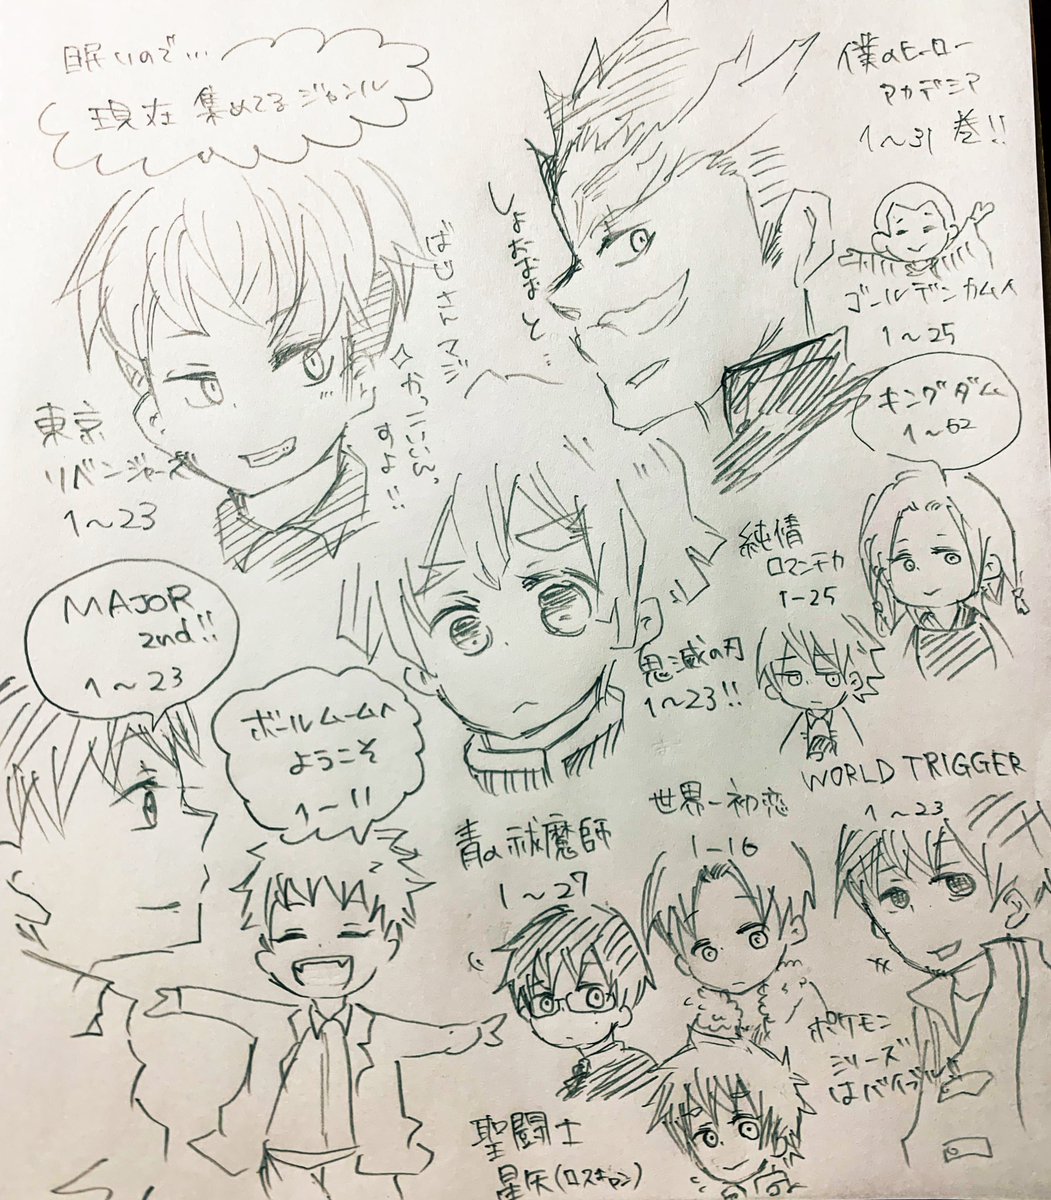 眠いので…
現在 集めてるジャンル
僕のヒーロー
アカデミア
1〜31 巻!!
しょおおおと…
ゴールデンカムイ
1〜25
キングダム
1〜62
東京
リベンジャーズ
1〜23
ばじさんマジ
かっこいいっ
すよ!!
MAJOR
2nd!!
1〜23
ボールルームへ
ようこそ
1〜11
純情
ロマンチカ
1-25
鬼滅の刃
1〜23!!
WORLD TRIGGER
1〜23
世界一初恋
1-16
青の祓魔師
1〜27
ポケモン
シリーズ
はバイブル!!
聖闘士
星矢(ロスキャン)